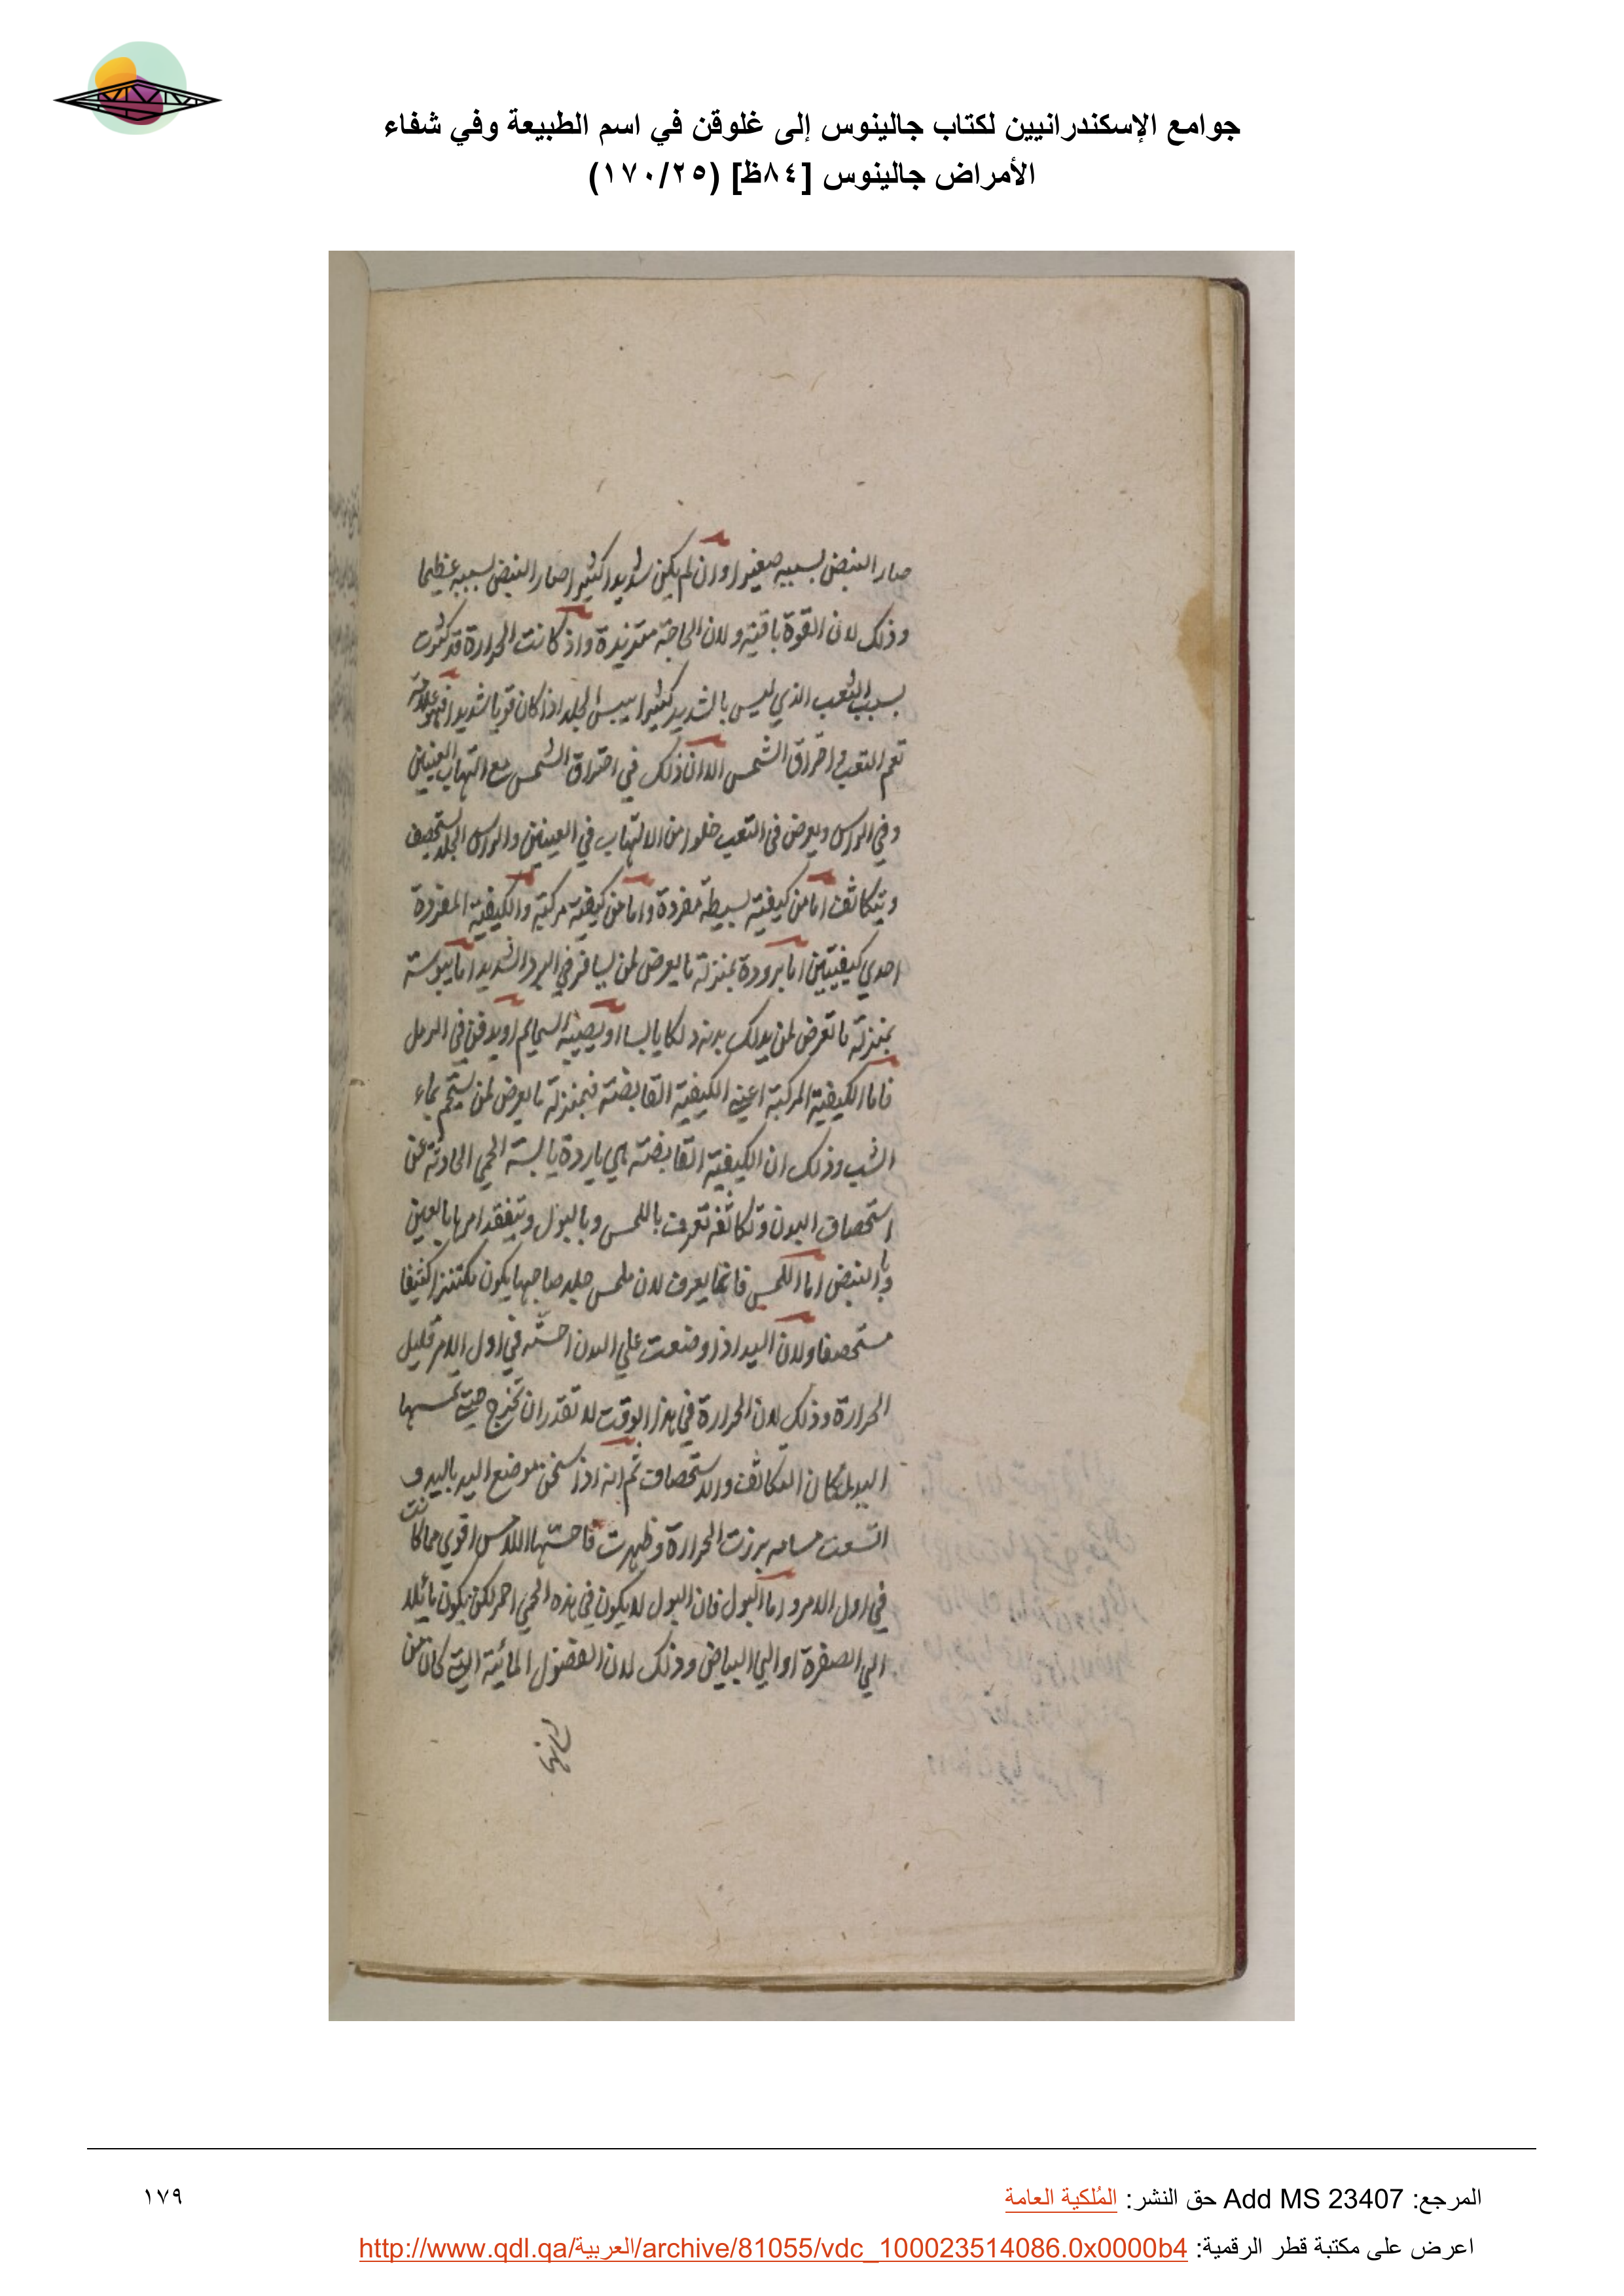 جوامع الإسكندرانيين لكتاب جالينوس إلى غلوقن في اسم الطبيعة وفي شفاء
الأمراض جالينوس [٨٤ظ] (١٧٠/٢٥)
صار النبض بسببه صغيرا وان لم يكن شديدا كثيرا صار النبض بسببه عظيما
وذلك لان القوة باقية ولان الحاجة متزيدة واذ كانت الحرارة قد كثرت
بسبب التعب الذي ليس بالشديد كثيرا يبس الجلد اذا كان قويا شديدا فهو علامة
تعم التعب واحراق الشمس الا ان ذلك في احتراق الشمس مع التهاب العينين
وفي الراس ويعرض في التعب خلوا من الالتهاب في العينين والراس الجلد يستحصف
ويتكاثف اما من كيفية بسيطة مفردة واما من كيفية مركبة والكيفية المفردة
احدي كيفيتين اما برودة بمنزلة ما يعرض لمن يسافر في البرد الشديد اما يبوسة
بمنزلة ما تعرض لمن يدلك بدنه دلكا يابسا او يصيبه السمايم او يدفن في الرمل
فاما الكيفية المركبة اعني الكيفية القابضة فبمنزلة ما يعرض لمن يستحم بماء
الشب وذلك ان الكيفية القابضة هي باردة يابسة الحمي الحادثة عن
استحصاف البدن وتكاثفه تعرف باللمس وبالبول ويتفقد امرها بالعين
وبالنبض اما اللمس فانما يعرف لان ملمس جلد صاحبها يكون مكتنزا كثيفا
مستحصفا ولان اليد اذا وضعت علي البدن احسته في اول الامر قليل
الحرارة وذلك لان الحرارة في هذا الوقت لا تقدر ان تخرج حتي تحسها
اليد لمكان التكاثف والاستحصاف ثم انه اذا سخن موضع اليد باليد و
اتسعت مسامه برزت الحرارة وظهرت فاحستها اللامس اقوي مما كانت
في اول الامر واما البول فان البول لا يكون في هذه الحمي احمر لكن يكون مائلا
الي الصفرة او الي البياض وذلك لان الفضول المائية التي كان من
شانها
المرجع: Add MS 23407 حق النشر: المُلكية العامة
١٧٩
اعرض على مكتبة قطر الرقمية: http://www.qdl.qa/العربية/archive/81055/vdc_100023514086.0x0000b4